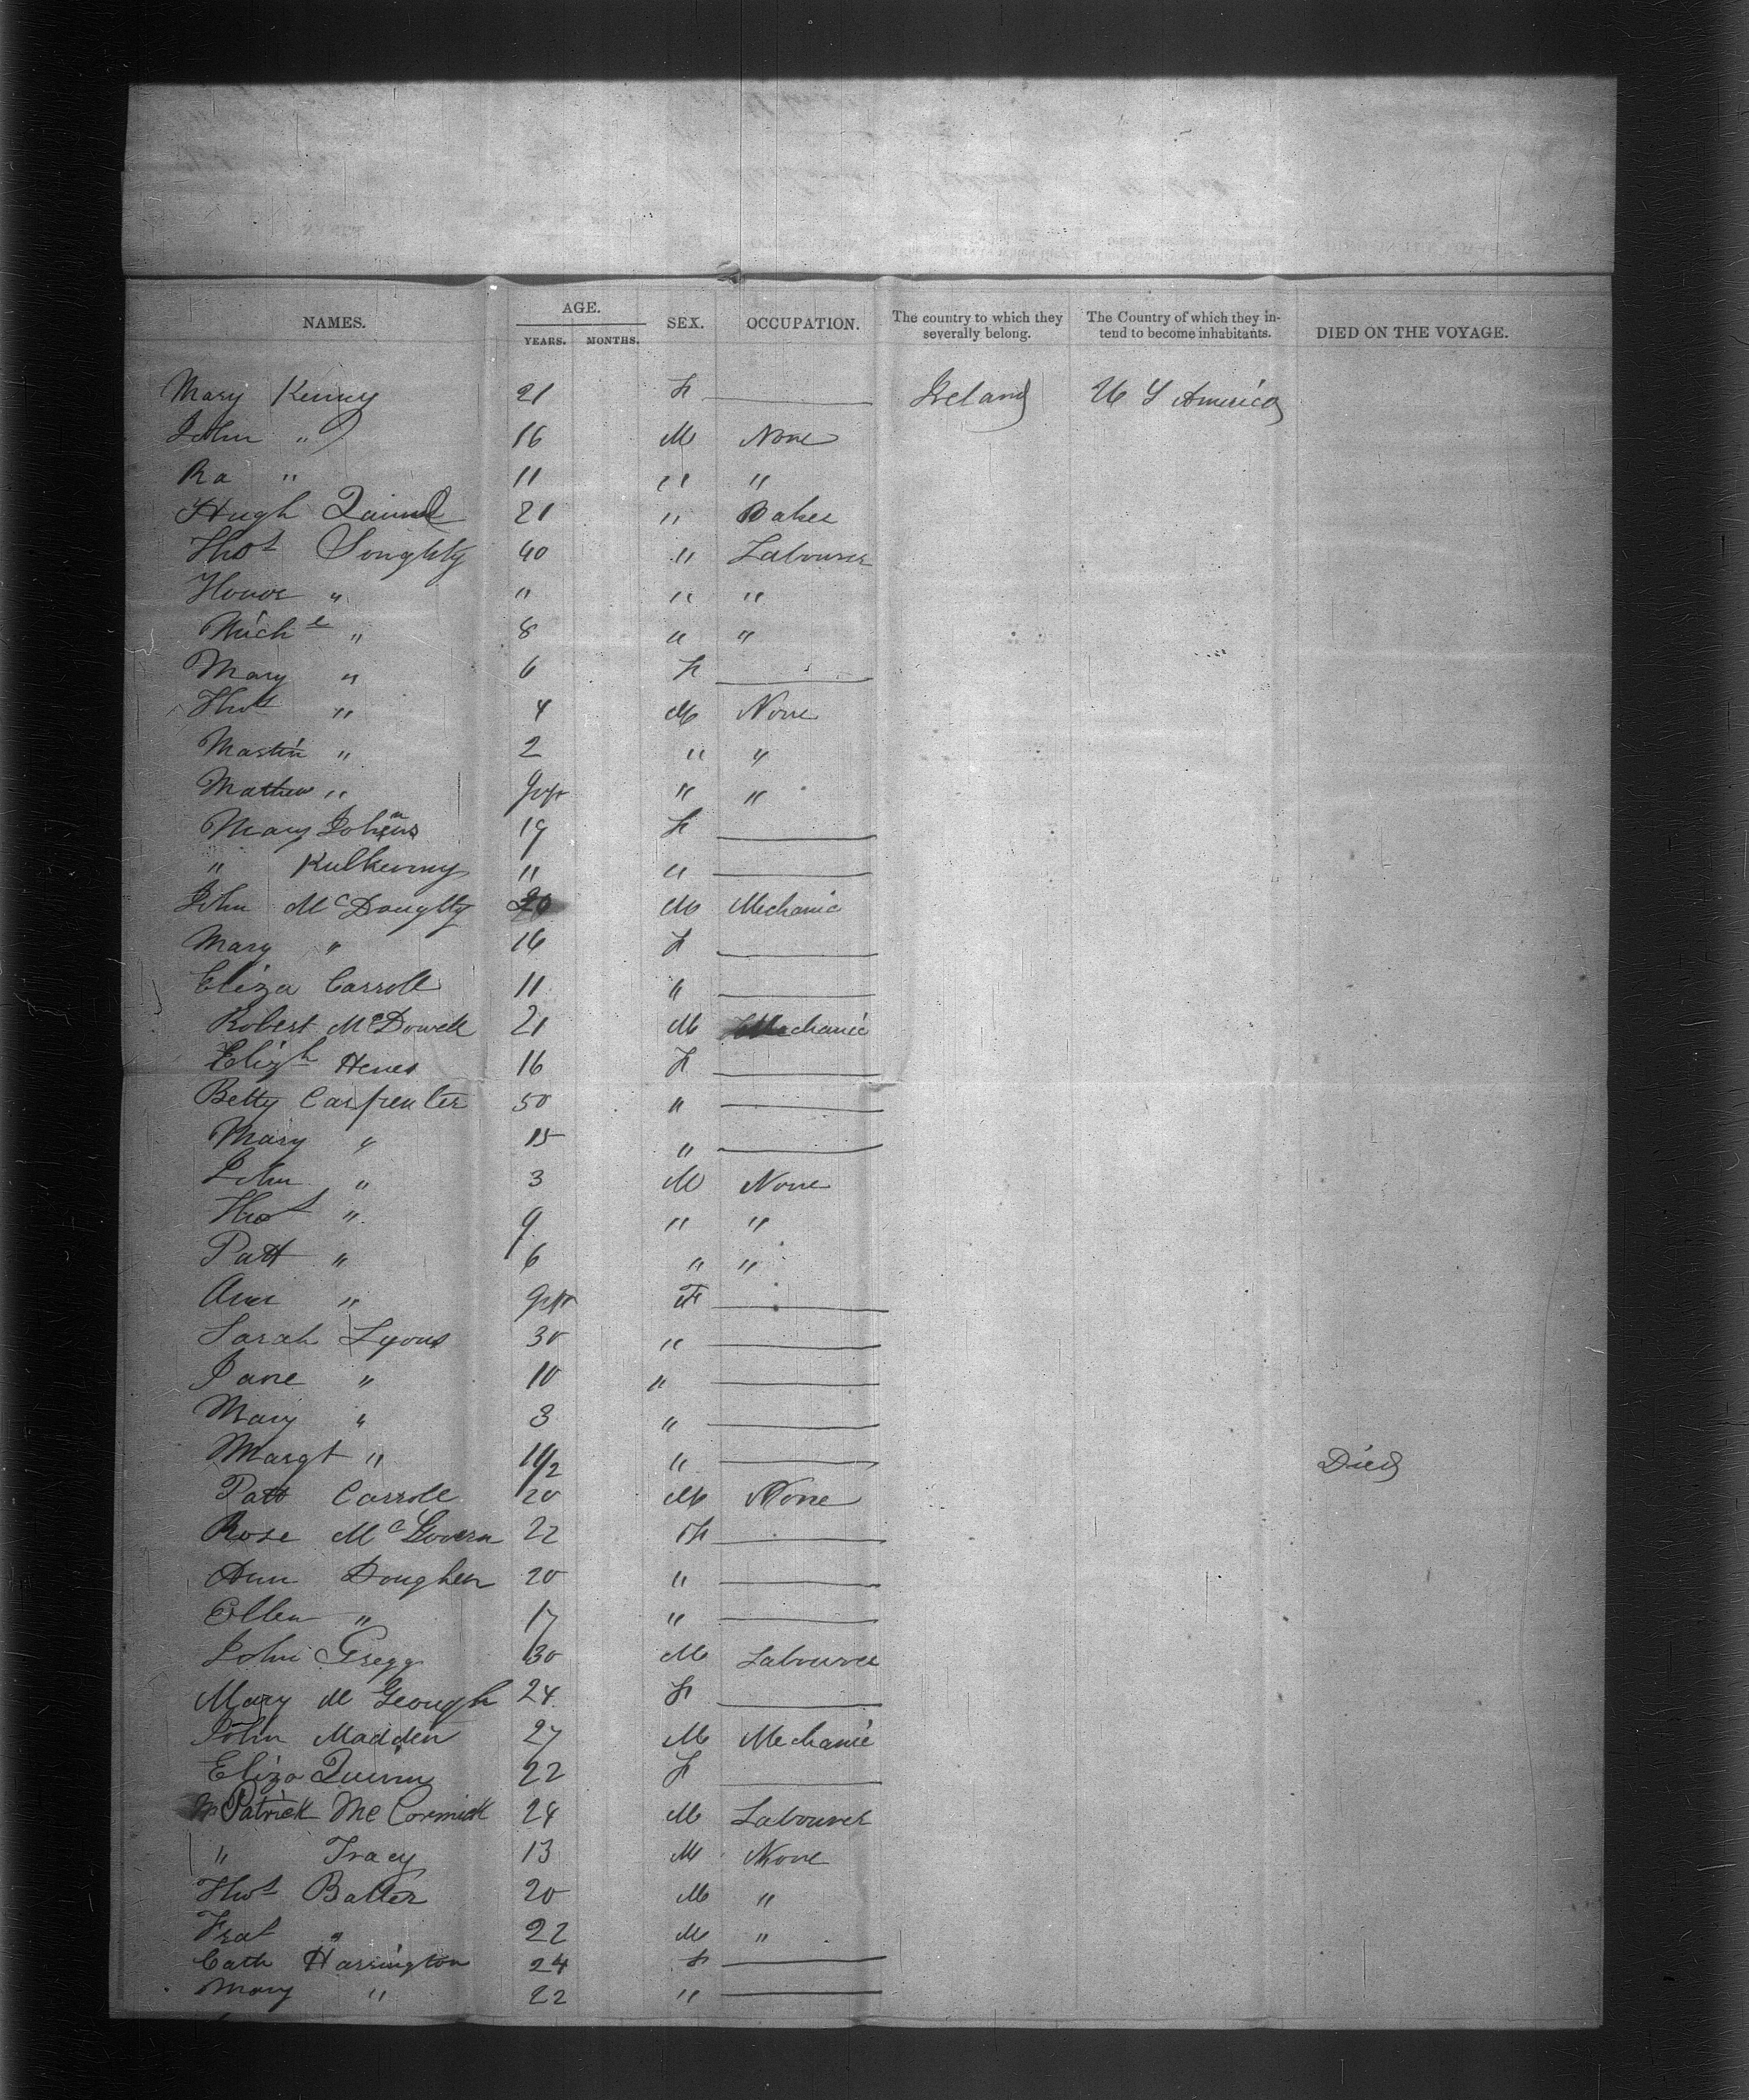 NAMES. AGE. YEARS. MONTHS. SEX. OCCUPATION. The country to which they severally belong. The Country of which they intend to become inhabitants. DIED ON THE VOYAGE.
Mary Kenny 21 F — Ireland U S America
John " 16 M None
" 11 " "
Hugh 21 " Baker
Thos 40 " Labourer
Honor " " " "
Michl " 8 " "
Mary " 6 F —
Thos " 4 M None
Martin " 2 " "
Mathew " " "
Mary 19 F —
" Kulkenny " " —
John McDoughty 20 M Mechanic
Mary " 16 F —
Eliza Carroll 11 " —
Robert McDowell 21 M Mechanic
Elizh 16 F —
Betty Carpenter 50 " —
Mary " 15 " —
John " 3 M None
Thos " 9 " "
Patt " 6 " "
Ann " F —
Sarah Lyons 30 " —
Jane " 10 " —
Mary " 3 " —
Margt " 1 1/2 " — Died
Patt Carroll 20 M None
Rose McGovern 22 F —
Ann Dougher 20 " —
Ellen " 17 " —
John Gregg 30 M Labourer
Mary Mc Geough 24 F —
John Madden 27 M Mechanic
Eliza Quinn 22 F —
Patrick McCormick 24 M Labourer
" Tracy 13 M None
Thos Batter 20 M "
" 22 M "
Cath Harrington 24 F —
Mary " 22 " —